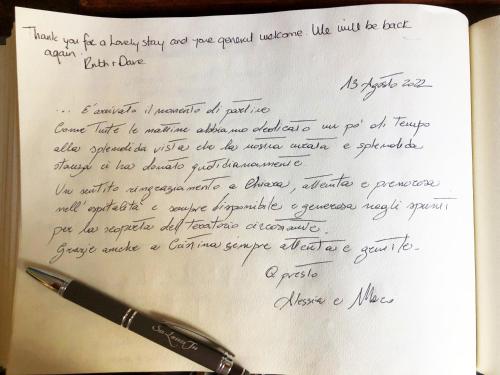 Thank you for a Lovely stay and your general welcome. We will be back
again.
Ruth + Dave
13 Agosto 2022
... È arrivato il momento di partire
Come tutte le mattine abbiamo dedicato un pò di tempo
alla splendida vista che la nostra curata e splendida
stanza ci ha donato quotidianamente.
Un sentito ringraziamento a Chiara, attenta e premurosa
nell'ospitalità e sempre disponibile e generosa negli spunti
per la scoperta del territorio circostante.
Grazie anche a Cristina sempre attenta e gentile.
A presto
Alessia e Marco